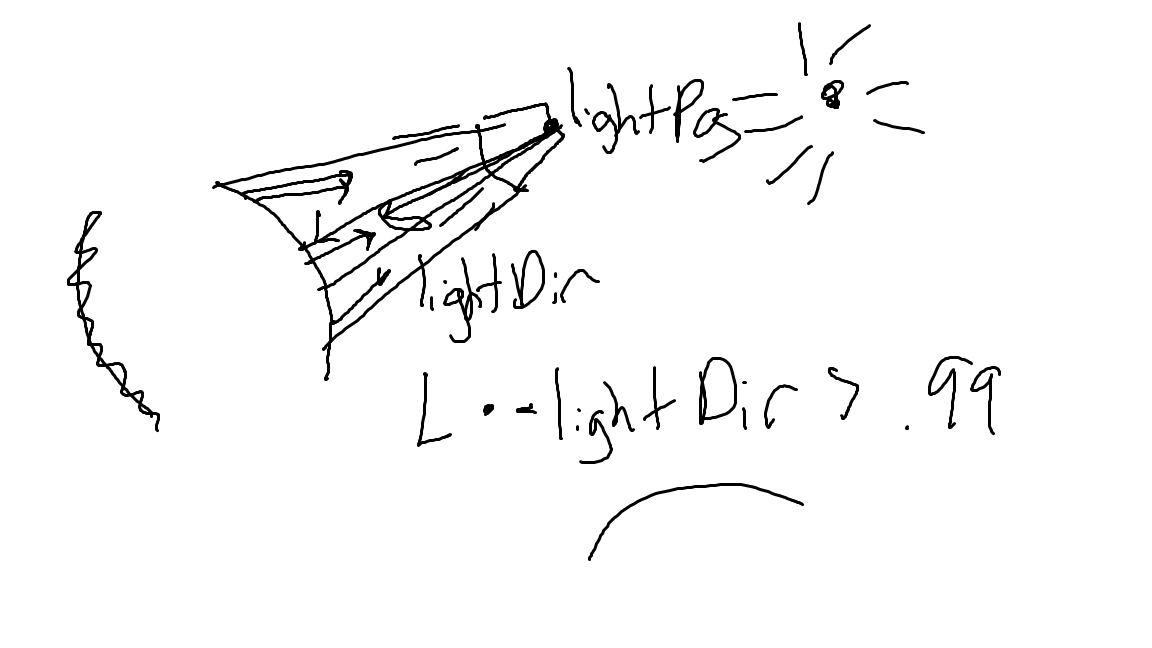 lightPos
L
lightDir
L • -lightDir > .99